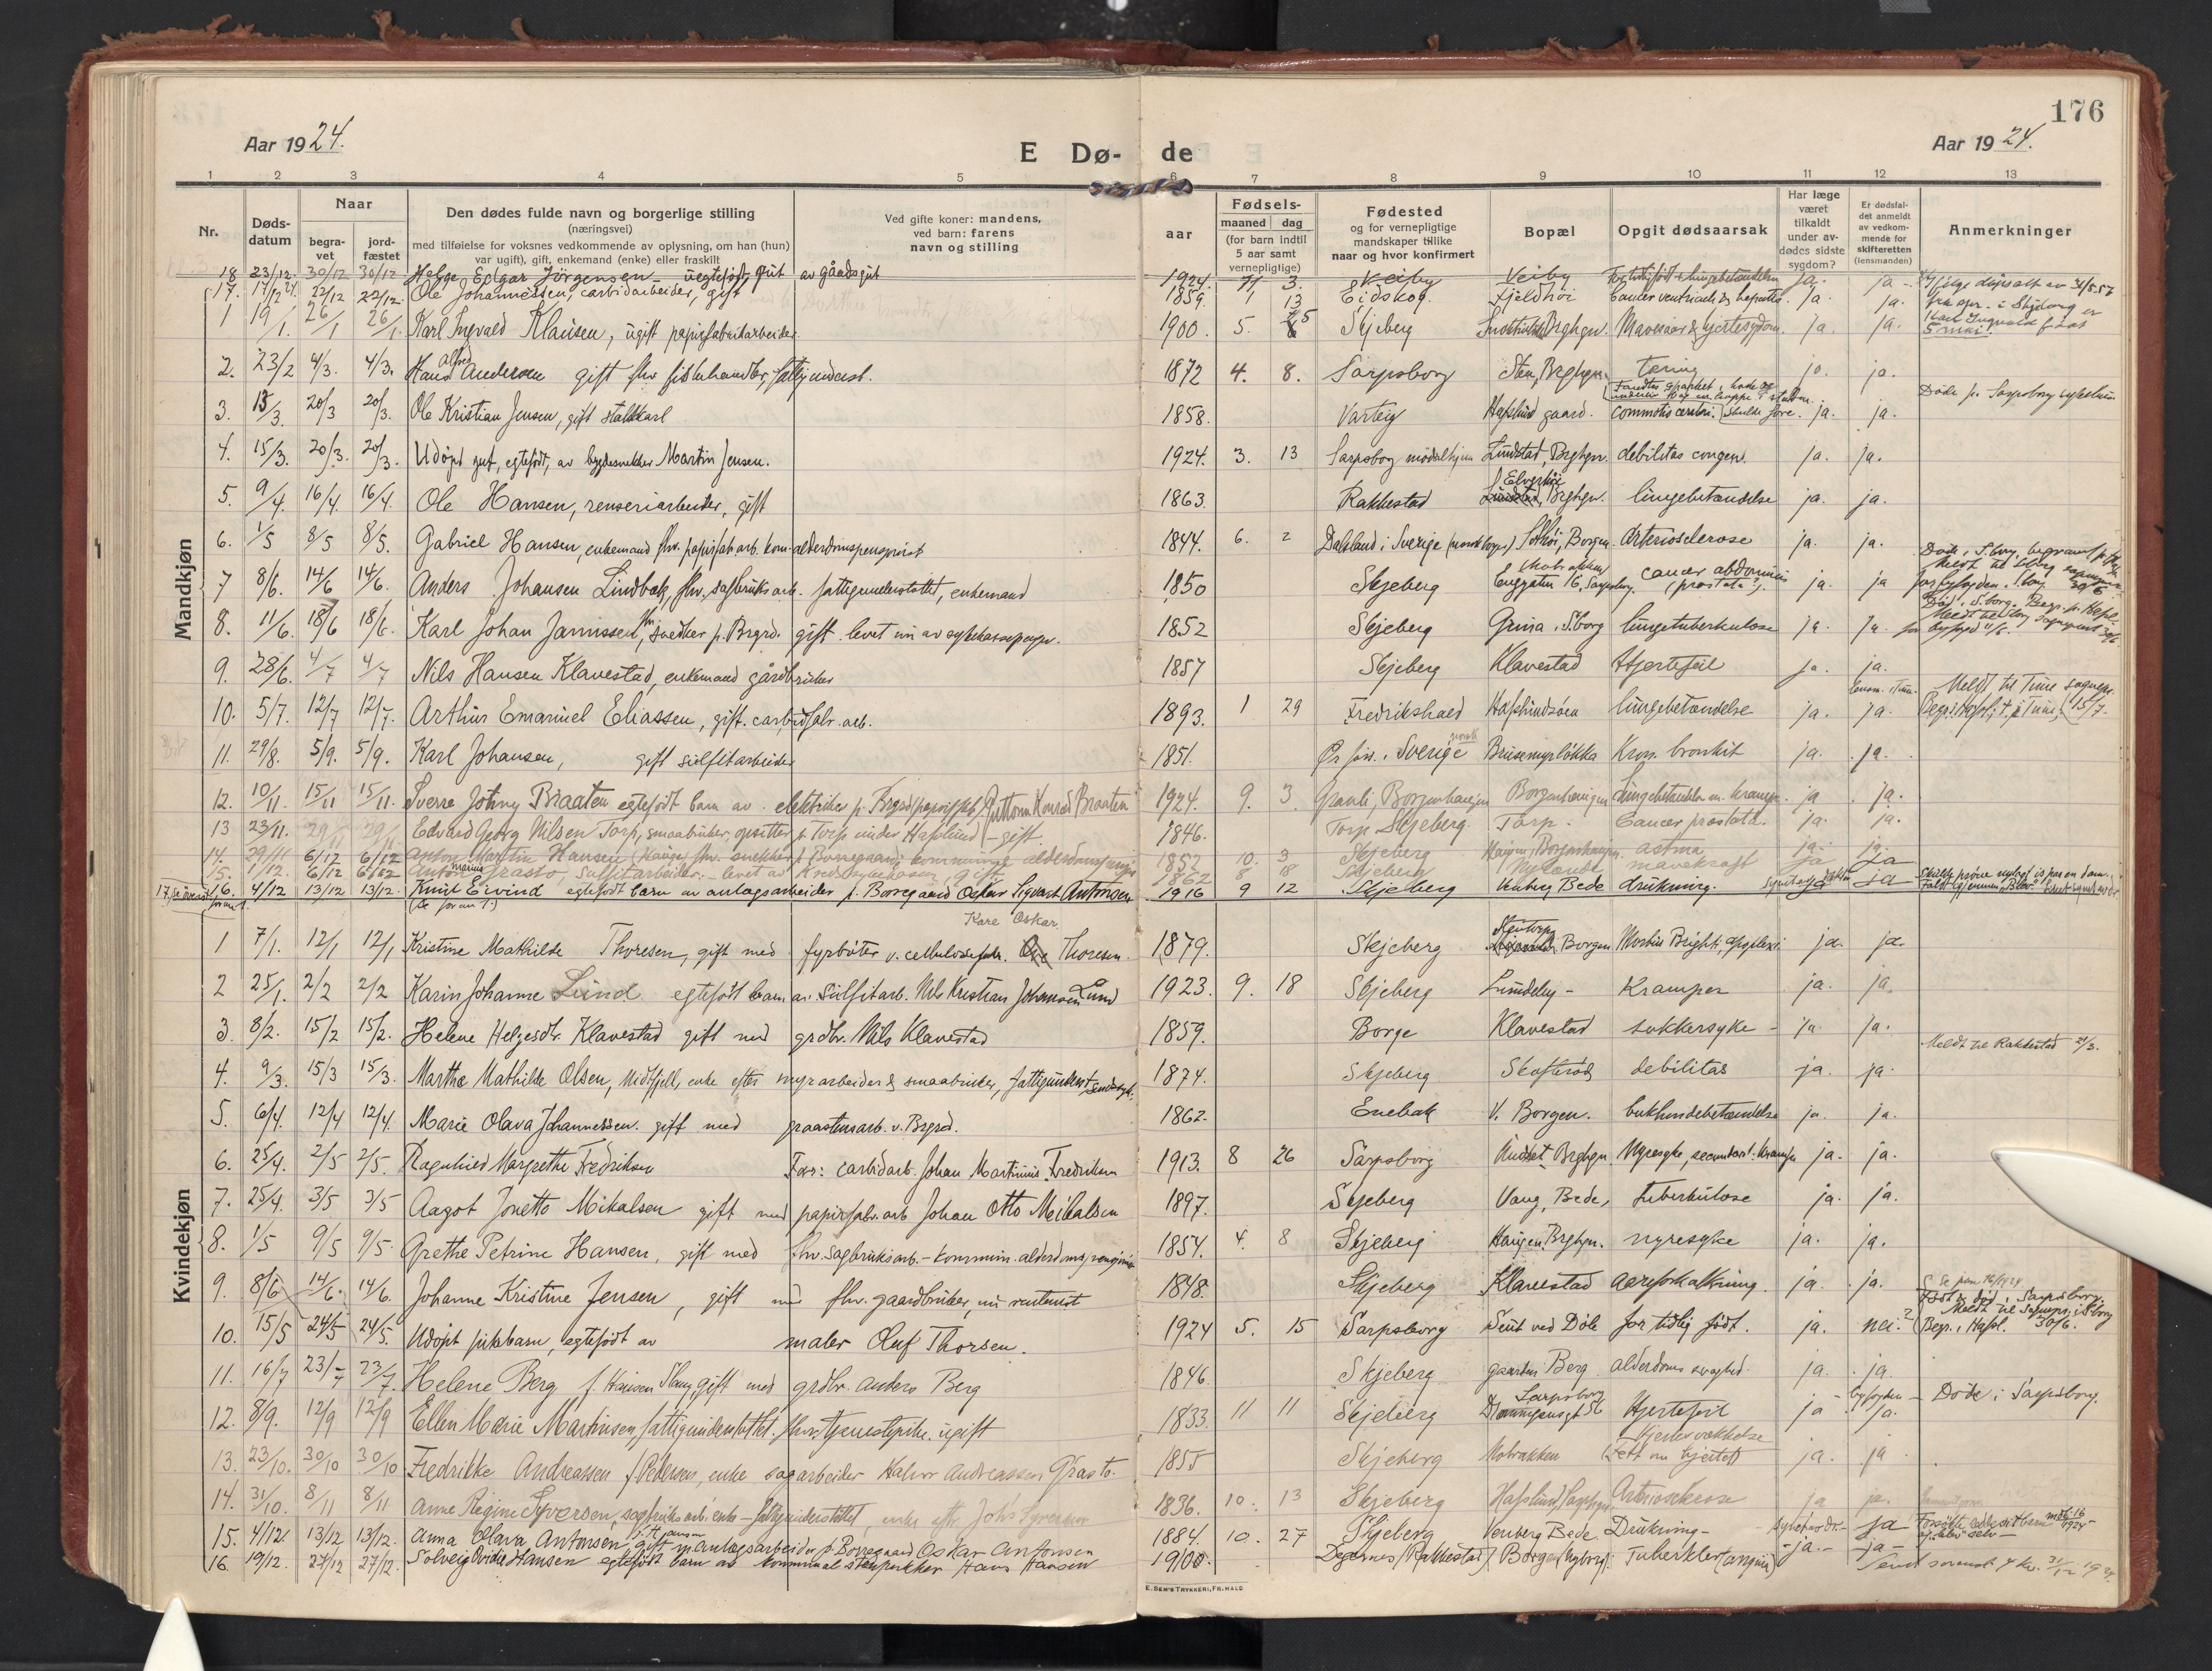 176
Aar 1924.
E Dø- de
Aar 1924.
1 2 3 4 5 6 7 8 9 10 11 12 13
Nr.
Døds-datum
Naar
begra-vet
jord-fæstet
Den dødes fulde navn og borgerlige stilling
(næringsvei)
med tilføielse for voksnes vedkommende av oplysning, om han (hun)
var ugift), gift, enkemand (enke) eller fraskilt
Ved gifte koner: mandens,
ved barn: farens
navn og stilling
aar
Fødsels-
maaned dag
(for barn indtil
5 aar samt
vernepligtige)
Fødested
og for vernepligtige
mandskaper tillike
naar og hvor konfirmert
Bopæl
Opgit dødsaarsak
Har læge
været
tilkaldt
under av-
dødes sidste
sygdom?
Er dødsfal-
det anmeldt
av vedkom-
mende for
skifteretten
(lensmanden)
Anmerkninger
Mandkjøn
18 23/12. 30/12 30/12 Helge Edgar Jørgensen uegtefødt gut av gaardsgut 1924. 3. Veiby Veiby ja. ja
17. 17/12 24. 22/12 22/12. Ole Johannessen, carbidarbeider, gift 1859. 1 13 Eidskog. Fjeldhøi Cancer ventriculi & hepatis ja. ja.
1 19/1. 26/1 26/1. Karl Ingvald Klausen, ugift papirfabrikarbeider. 1900. 5. 5 Skjeberg Brghgn. Mavesaar & hjertesygdom. ja. ja.
2. 23/2 4/3. 4/3. Hans Alfred Andersen gift fhv fiskehandler, fattigunderst. 1872 4. 8. Sarpsborg Sten, Brghgn. tæring ja. ja.
3. 13/3. 20/3 20/3. Ole Kristian Jensen, gift staldkarl 1858. Varteig Hafslund gaard. commotio cerebri. ja. ja. Døde p. Sarpsborg sykehus
4. 15/3. 20/3. 20/3. Udøpt gut, egtefødt, av bygdesnekker Martin Jensen. 1924. 3. 13 Sarpsborg mødrehjem Lundstad, Brghgn. debilitas congen. ja. ja.
5. 9/4. 16/4. 16/4. Ole Hansen, renseriarbeider, gift 1863. Rakkestad Brghgn. lungebetændelse ja. ja.
6. 1/5 8/5 8/5. Gabriel Hansen, enkemand fhv. papirfab.arb. kom. alderdomspensjonist 1844. 6. 2 Dalsland i Sverige Solhøi, Borgen. Arteriosclerose ja. ja.
7 8/6. 14/6 14/6. Anders Johansen Lindbæk, fhv. sagbruksarb. fattigunderstøttet, enkemand 1850 Skjeberg Enggaten 16, Sarpsborg. cancer abdominis (prostata?) ja. ja
8. 11/6. 18/6 18/6. Karl Johan Jannissen, snedker p. Brgrd. gift. levet nu av sykekassepenger. 1852 Skjeberg Greina i S.borg lungetuberkulose ja. ja.
9. 28/6. 4/7 4/7 Nils Hansen Klavestad, enkemand gårdbruker 1857 Skjeberg Klavestad Hjertefeil ja. ja.
10. 5/7. 12/7 12/7. Arthur Emanuel Eliassen, gift. carbidfabr. arb. 1893. 1 29 Fredrikshald Hafslundsøen lungebetændelse ja. ja. Meldt til Tune sogneprest 15/7.
11. 29/8. 5/9. 5/9. Karl Johansen, gift sulfitarbeider 1851. Sverige Brusemyrløkka Kron. bronkit ja. ja.
12. 10/11. 15/11 15/11. Sverre Johny Braaten egtefødt barn av elektriker p. Brgrd papirfabr. Guttorm Konrad Braaten 1924. 9. 3. Granli, Borgenhaugen Borgenhaugen Lungebetændelse m. krampe. ja ja.
13 23/11. 29/11 29/11 Edvard Georg Nilsen Torp, smaabruker, opsitter p. Torp under Hafslund - gift 1846. Torp Skjeberg. Torp. Cancer prostata. ja. ja.
14. 29/11 6/12 6/12 Anton Martin Hansen (Hauge) fhv. snekker p. Borregaard, kommunal alderdomspensjon 1852 10. 3 Skjeberg Haugen, Borgenhaugen. astma ja. ja.
15. 1/12. 6/12 6/12 Anton Marius Græsto, Sulfitarbeider - levet av Kredssykekassen, gift 1862 8 18 Skjeberg Nylænde mavekræft ja ja
16. 4/12 13/12 13/12. Knut Eivind egtefødt barn av anlægsarbeider p. Borregaard Oskar Sigvart Antonsen 1916 9 12 Skjeberg Venberg Bede drukning. ja
Kvindekjøn
Kare Oskar.
1 7/1. 12/1 12/1 Kristine Mathilde Thoresen, gift med fyrbøter v. cellulosefabr. Thoresen. 1879. Skjeberg Borgen Morbus Brighti, apoplexi ja. ja.
2 25/1. 2/2 2/2 Karin Johanne Lund egtefødt barn av sulfitarb. Nils Kristian Johansen Lund 1923. 9. 18 Skjeberg Lundeby - Kramper ja. ja.
3 8/2. 15/2 15/2. Helene Helgesdtr. Klavestad gift med grdbr. Nils Klavestad 1859. Borge Klavestad sukkersyke - ja. ja.
4. 9/3. 15/3 15/3. Marthe Mathilde Olsen, Midtfjell, enke efter myrarbeider & smaabruker, fattigunderst. 1874. Skjeberg debilitas ja. ja. Meldt til Rakkestad 21/3.
5. 6/4. 12/4 12/4. Marie Olava Johannessen. gift med graastensarb. v. Brgrd. 1862. Enebak V. Borgen. bukhindebetændelse ja. ja.
6. 25/4. 2/5 2/5. Ragnhild Margrethe Fredriksen Far: carbidarb. Johan Martinius Fredriksen 1913. 8 26 Sarpsborg Brghgn. Nyresyke, secundært: krampe ja. ja.
7. 25/4. 3/5 3/5 Aagot Jonette Mikalsen gift med papirfabr. arb Johan Otto Mikalsen 1897. Skjeberg Vang, Bede, Tuberkulose ja. ja.
8. 1/5 9/5 9/5. Grethe Petrine Hansen, gift med fhv. sagbruksarb. - kommun. alderdomspensjonist 1854. 4. 8 Skjeberg Haugen, Brghgn. nyresyke ja. ja.
9. 8/6 14/6. 14/6. Johanne Kristine Jensen, gift med fhv. gaardbruker, nu rentenist 1848. Skjeberg Klavestad aareforkalkning. ja. ja.
10. 15/5 24/5 24/5. Udøpt pikebarn, egtefødt av maler Oluf Thorsen. 1924 5. 15 Sarpsborg Sent ved Døle for tidlig født. ja. nei? Født & død i Sarpsborg. Begr. i Hafsl. 30/6.
11. 16/7 23/7 23/7. Helene Berg f. Hansen gift med grdbr. Anders Berg 1846. Skjeberg gaarden Berg alderdomssvaghed. ja. ja.
12. 8/9. 12/9 12/9 Ellen Marie Martinsen, fattigunderstøttet. fhv. tjenestepike. ugift 1833. 11 11 Skjeberg Sarpsborg Hjertefeil ja ja. Døde i Sarpsborg.
13. 23/10. 30/10 30/10 Fredrikke Andreassen f. Pedersen, enke sagarbeider Halvor Andreassen Græsto. 1855 Skjeberg Mobrækken (Fett om hjertet) ja. ja
14. 31/10. 8/11 8/11 Anne Regine Syversen, sagbruksarb. enke - fattigunderstøttet, enke eftr. Johs Syversen 1836. 10. 13 Skjeberg Hafslund, Arteriosclerose ja ja.
15. 4/12. 13/12 13/12. Anna Olava Antonsen, gift m. anlægsarbeider p. Borregaard Oskar Antonsen 1884. 10. 27 Skjeberg Venberg Bede Drukning - ja
16. 19/12. 27/12 27/12. Solveig Hansen egtefødt barn av kommunal stenpukker Hans Hansen 1900. Degernes (Rakkestad) Borgen (Nyborg). Tuberkler - ja. - - ja -
E. SEM'S TRYKKERI, FR.HALD